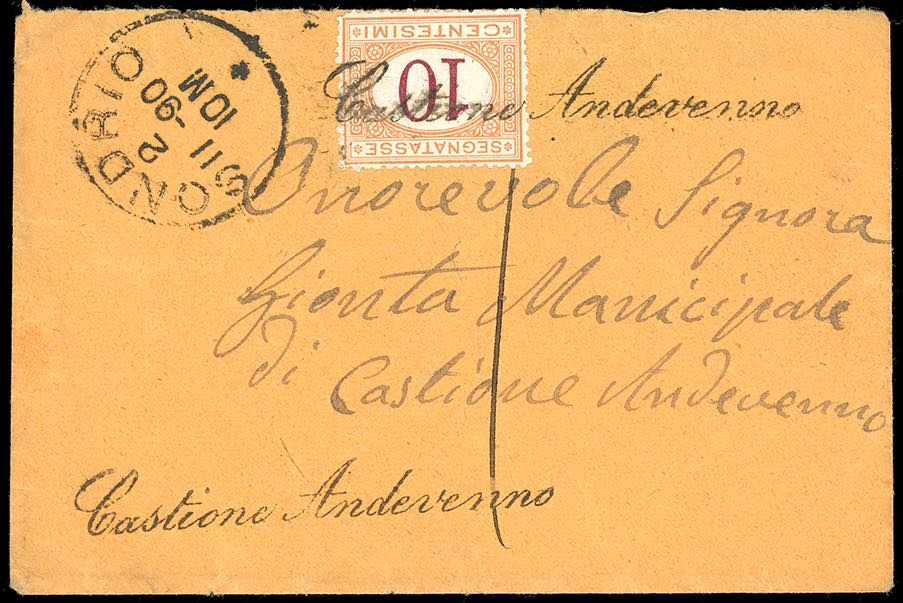 SONDRIO
2 -90
11 10M
SEGNATASSE
10
CENTESIMI
Castione Andevenno
Onorevole Signora
Gionta Manicipale
di Castione Andevenno
Castione Andevenno